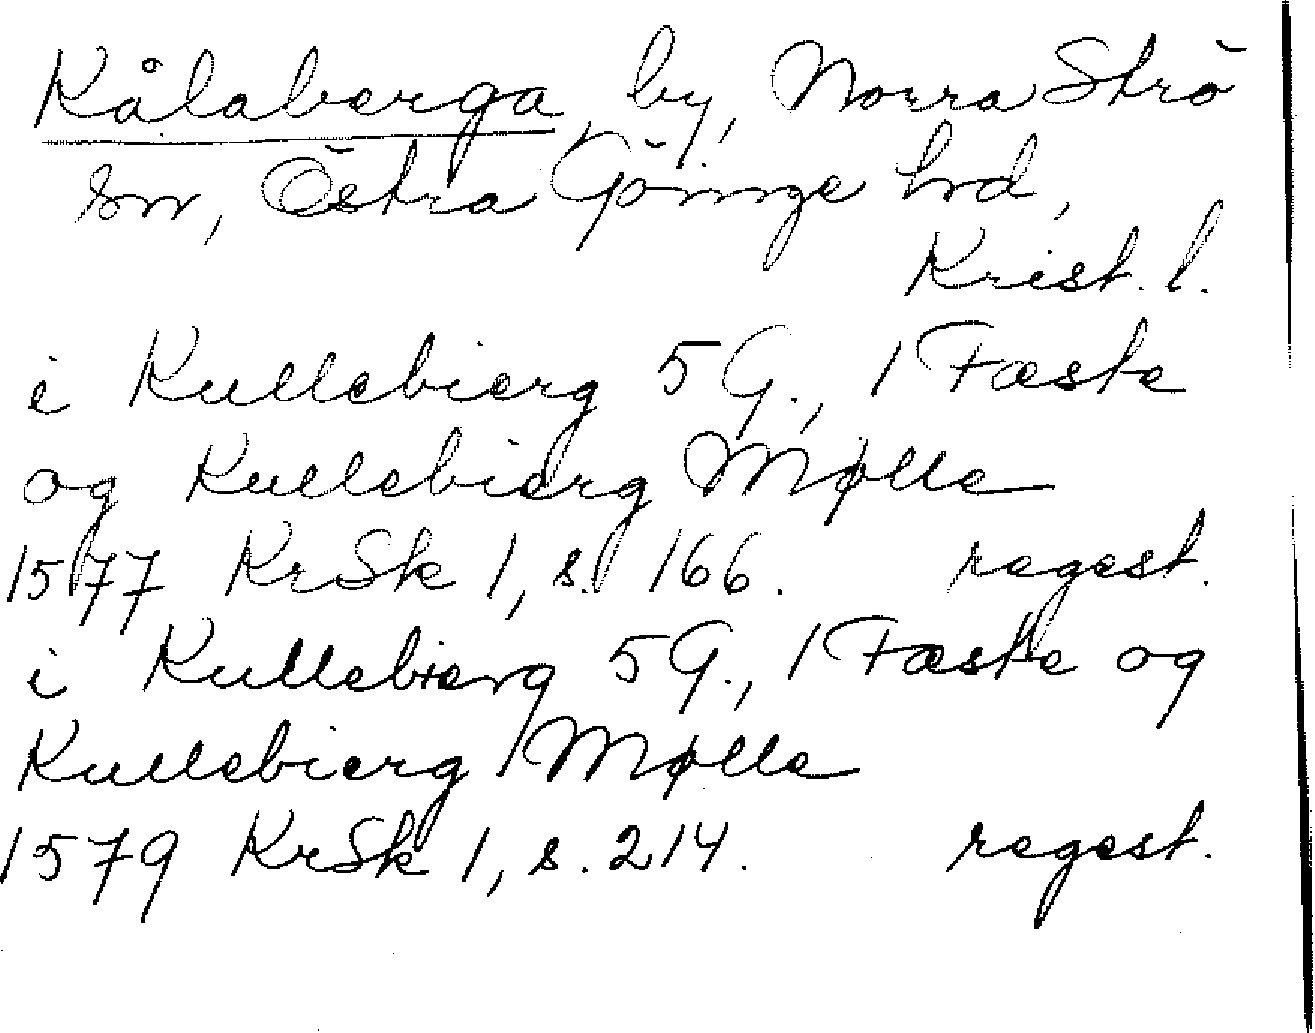 Kålaberga by, Norra Strö
sn, Östra Göinge hd,
Krist. l.
i Kullebierg 5 G., 1 Fæste
og Kullebierg Mølle
1577 KrSk 1, s. 166. regest.
i Kullebierg 5 G., 1 Fæste og
Kullebierg Mølle
1579 KrSk 1, s. 214. regest.